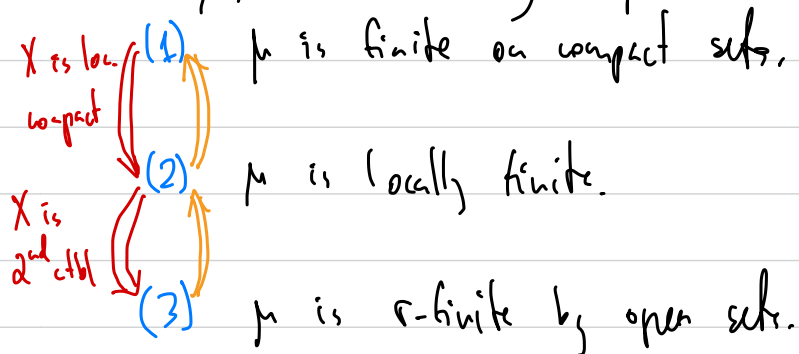 X is loc. (1) μ is finite on compact sets.
compact
(2) μ is locally finite.
X is
2nd ctbl
(3) μ is σ-finite by open sets.